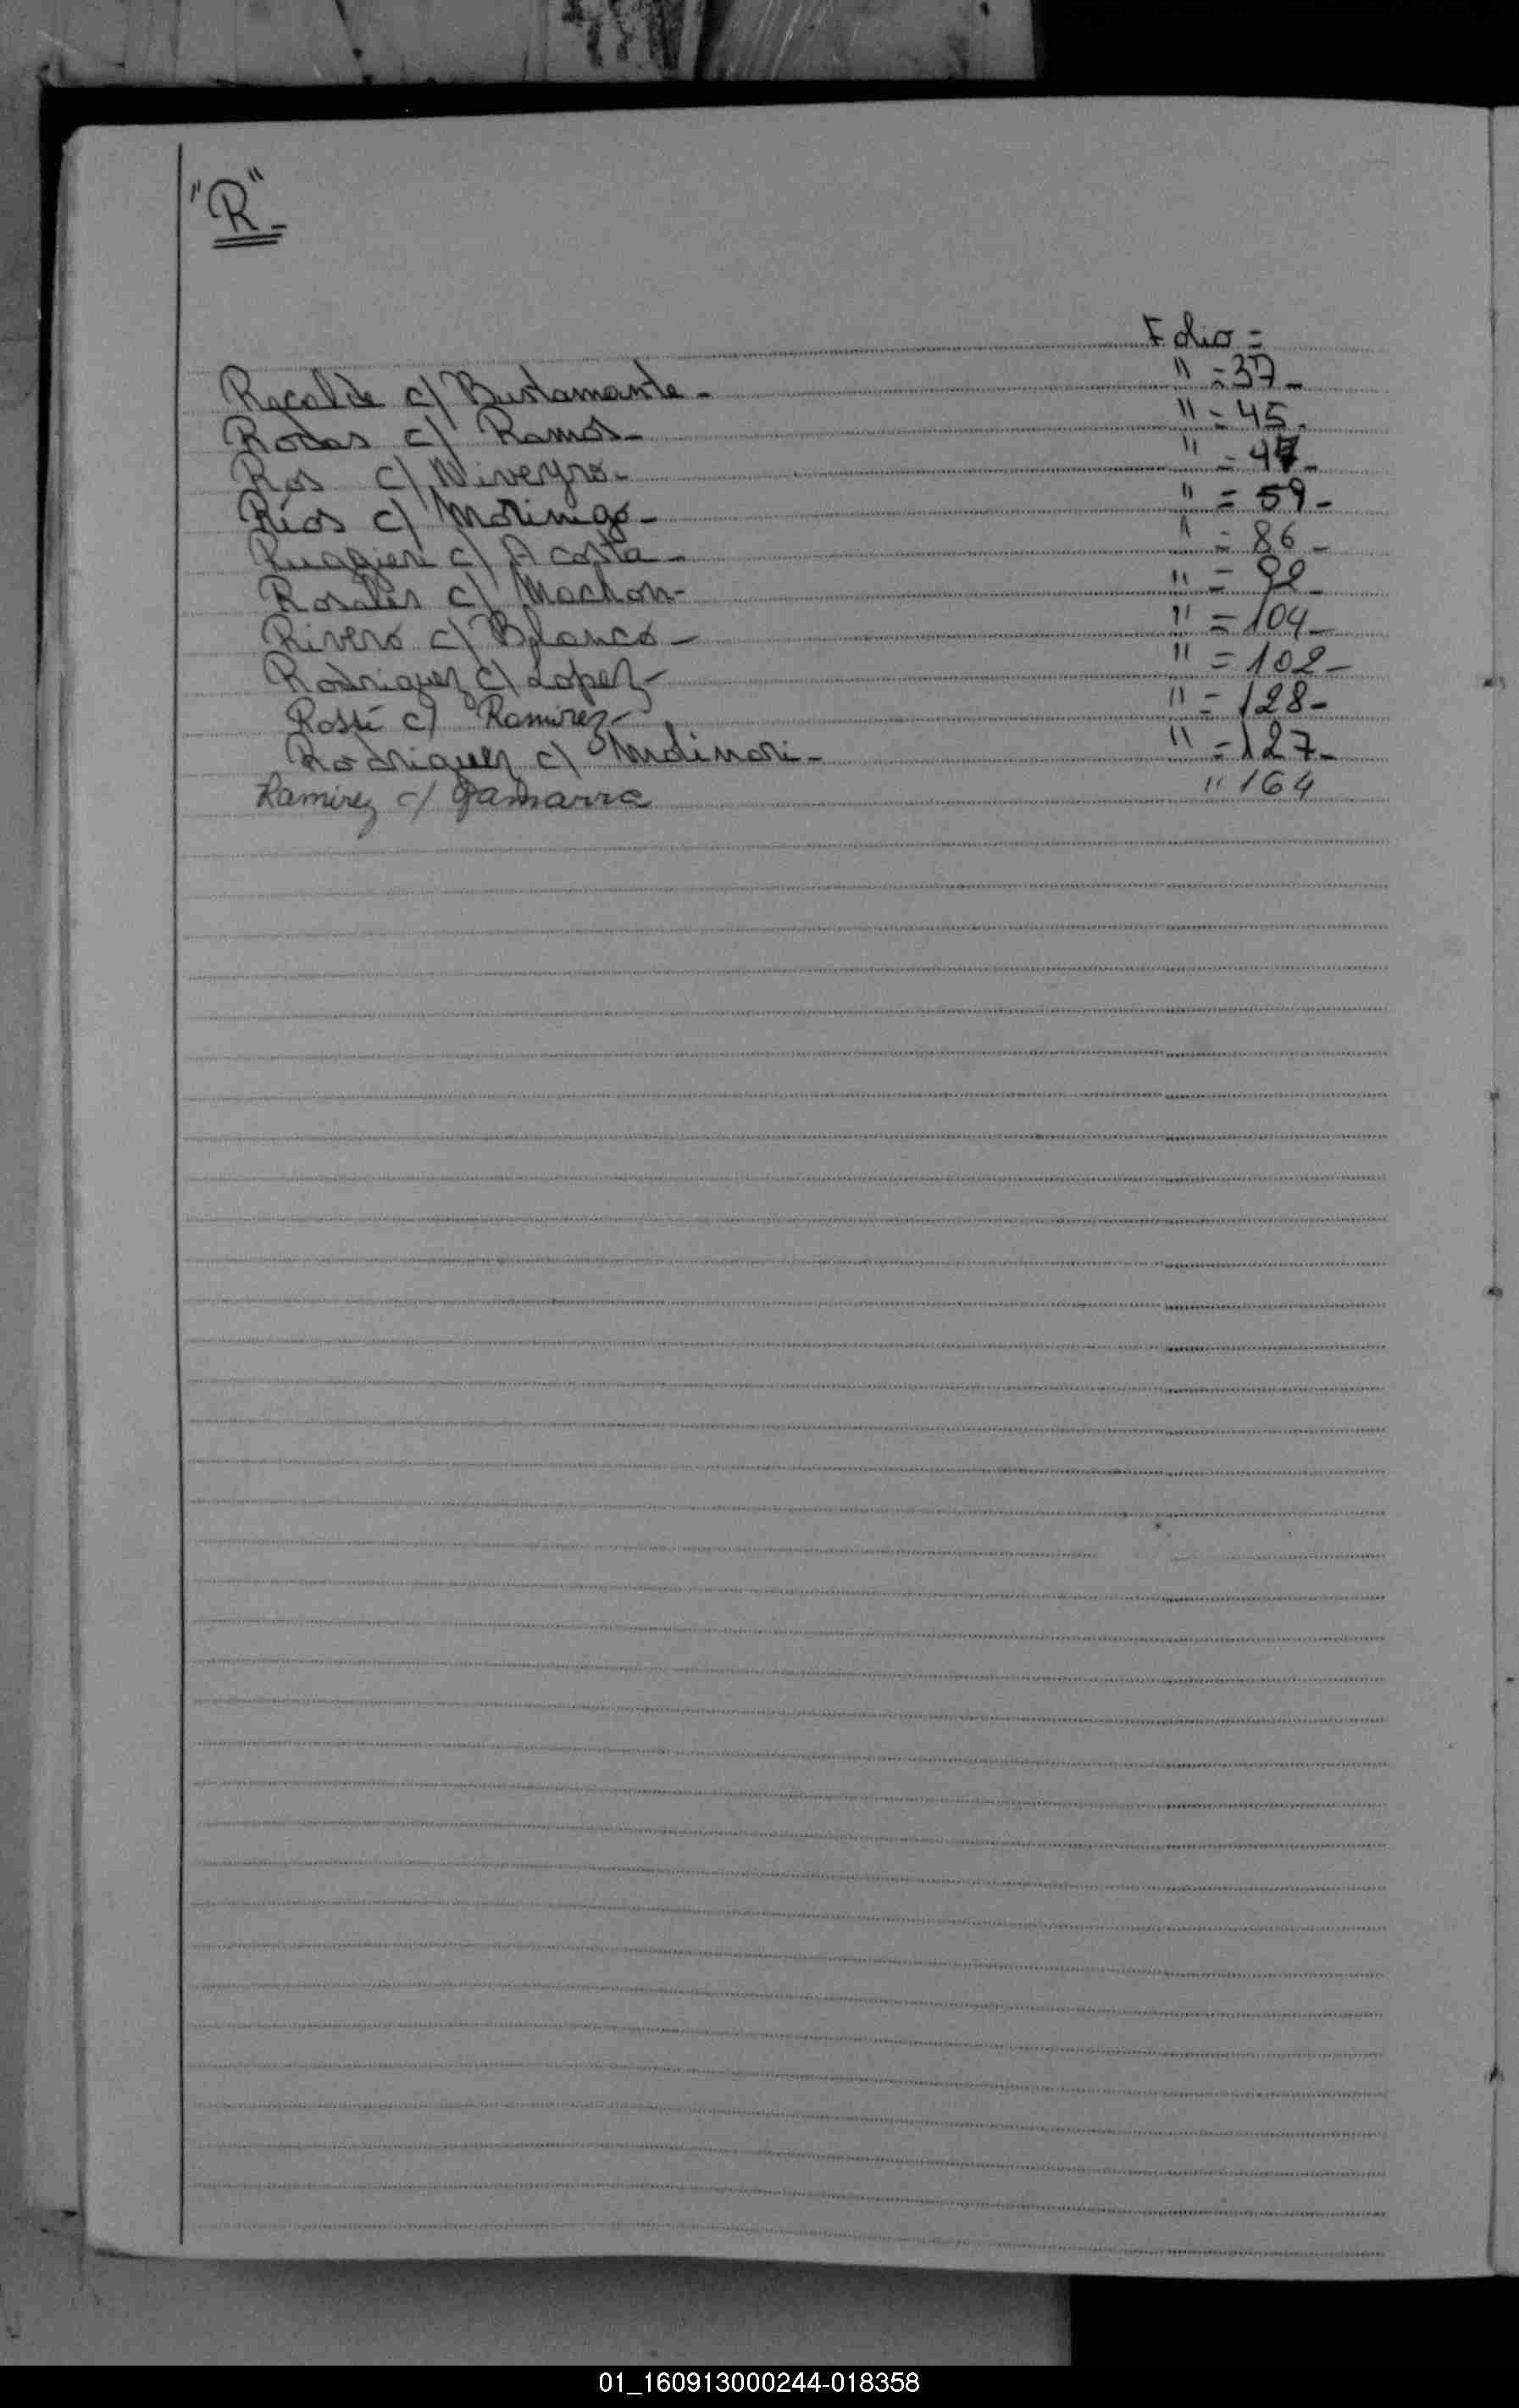 "R"-
Folio =
Recalde c/ Bustamante - " = 37 -
Rodas c/ Ramos - " = 45 -
Ros c/ Niveyro - " = 47 -
Ríos c/ Morinigo - " = 59 -
Ruggieri c/ Acosta - " = 86 -
Rosales c/ Machon - " =
Rivero c/ Blanco - " = 104 -
Rodriguez c/ Lopez - " = 102 -
Rossi c/ Ramirez - " = 128 -
Rodriguez c/ Molinari - " = 127 -
Ramirez c/ Gamarra " 164
01_160913000244-018358